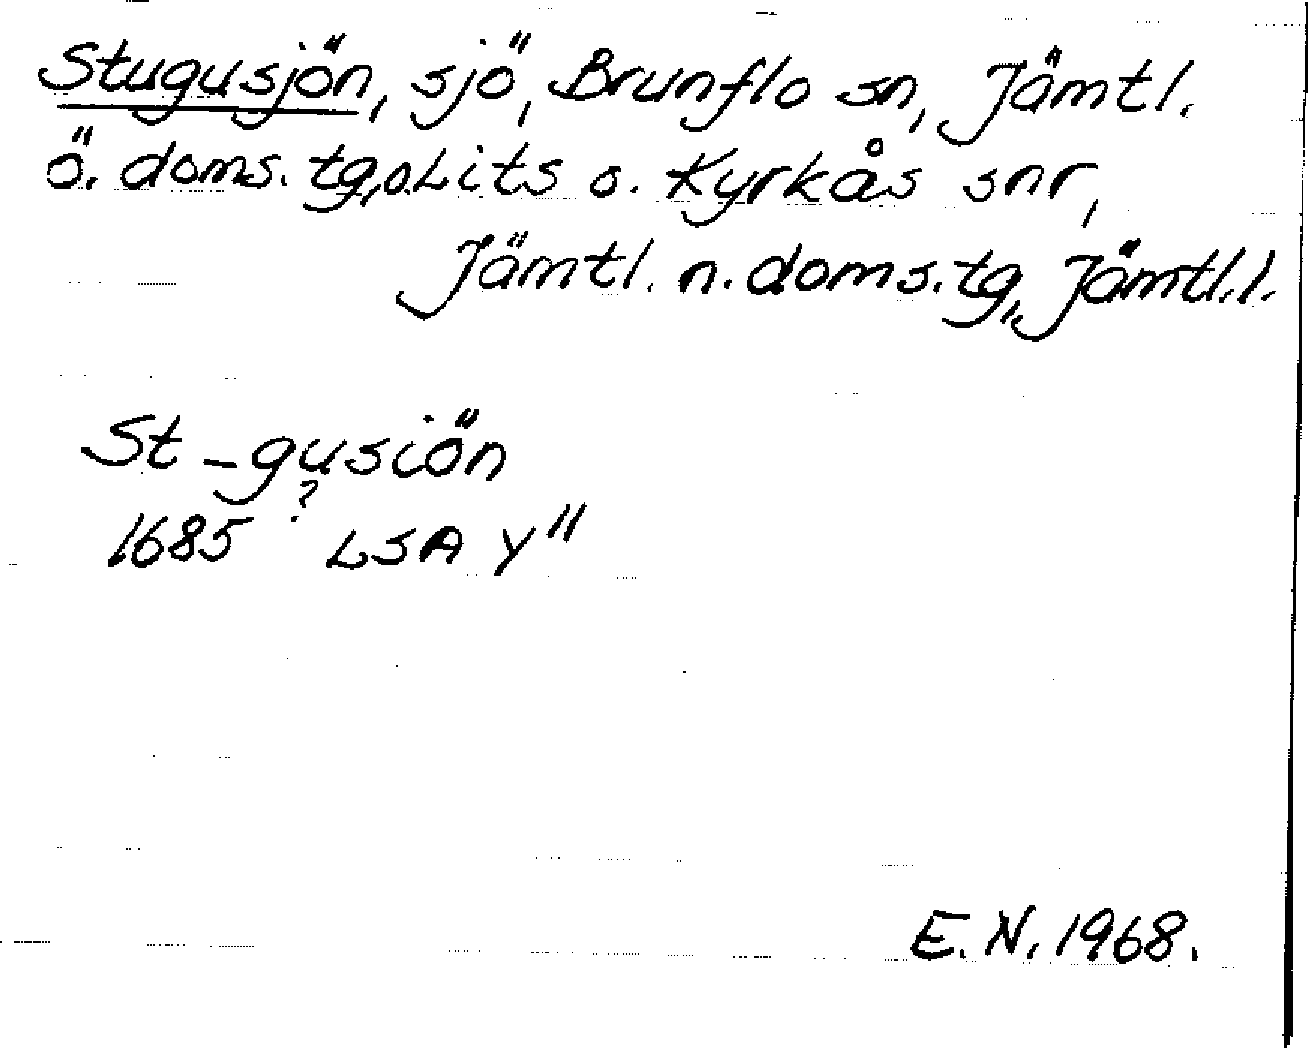 Stugusjön, sjö, Brunflo sn, Jämtl.
ö. doms.tg, o. Lits o. Kyrkås snr,
Jämtl. n. doms.tg, Jämtl.l.
St-gusiön
?
1685 LSA Y"
E.N. 1968.